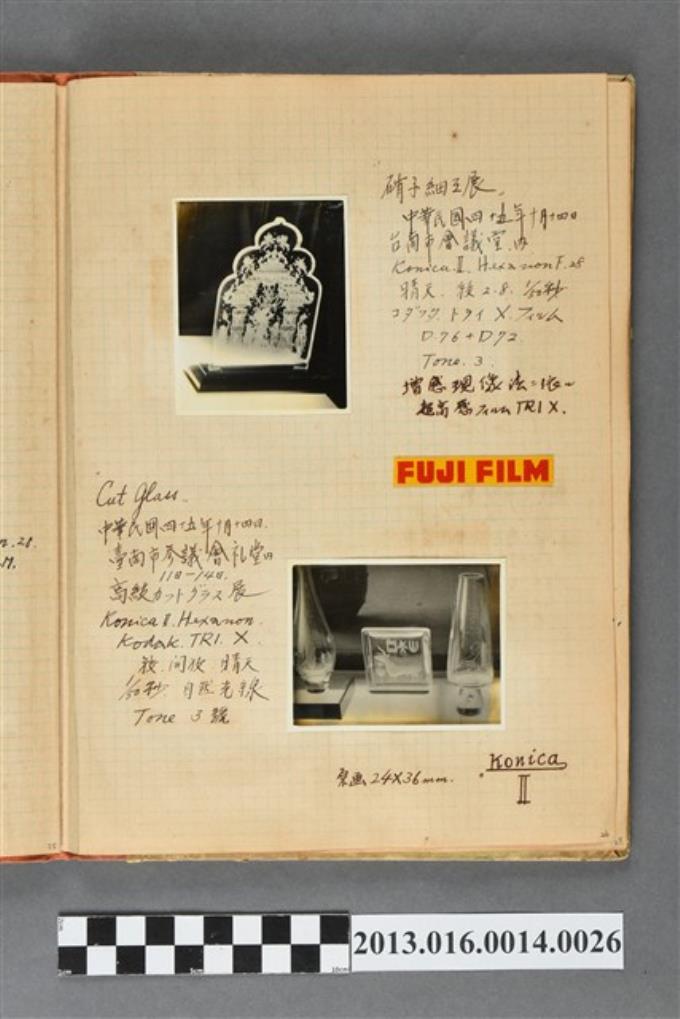 硝子細工展。
中華民国四十五年十月十四日
台南市會議堂内
Konica.Ⅱ. Hexanon F. 28
晴天. 絞 2.8. 秒
コダック トライ X. フィルム
D.76 + D72.
Tone. 3.
増感現像法ニ依ル
超高感フィルム TRI X.
FUJI FILM
Cut Glass.
中華民国四十五年十月十四日.
臺南市參議會礼堂内
11日-14日.
高級カットグラス展
Konica Ⅱ. Hexanon.
Kodak. TRI. X.
絞. 開放. 晴天
秒. 自然光線
Tone 3 號
24X36mm.
Konica
Ⅱ
25
26
2013.016.0014.0026